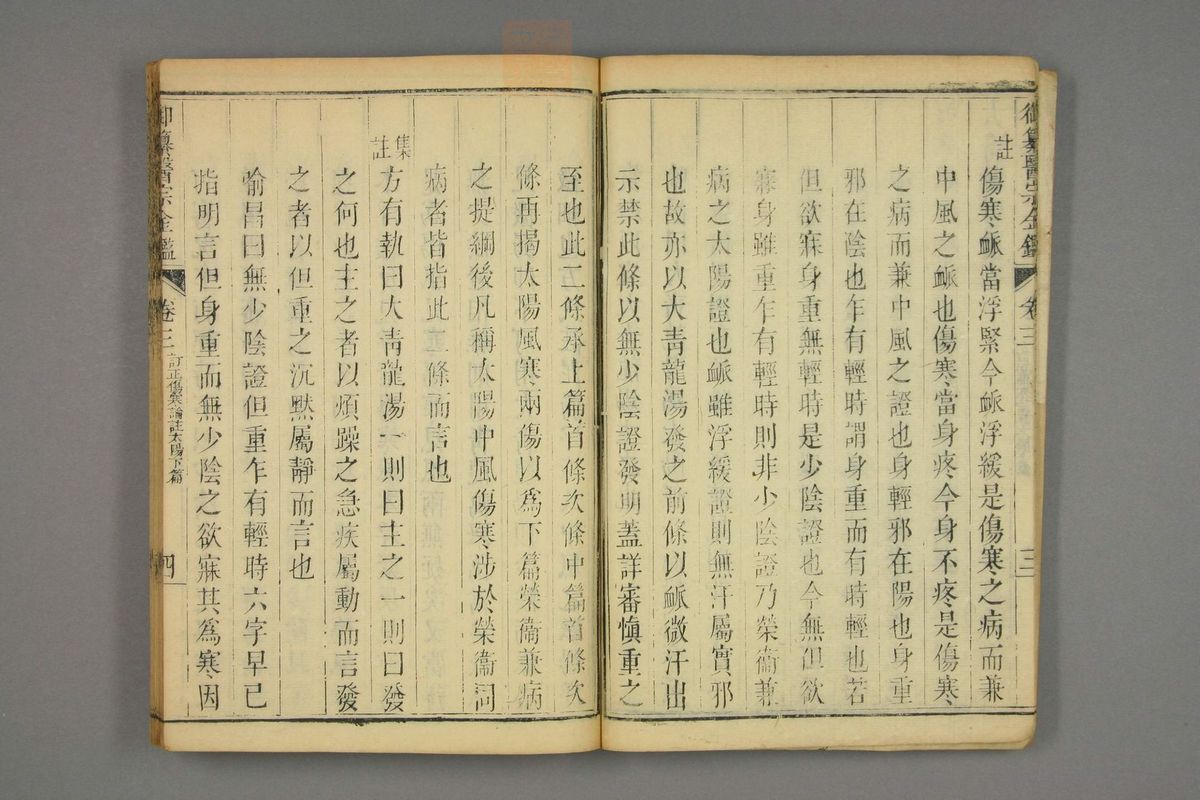 御纂醫宗金鑑 卷三 三
註
傷寒脈當浮緊今脈浮緩是傷寒之病而兼
中風之脈也傷寒當身疼今身不疼是傷寒
之病而兼中風之證也身輕邪在陽也身重
邪在陰也乍有輕時謂身重而有時輕也若
但欲寐身重無輕時是少陰證也今無但欲
寐身雖重乍有輕時則非少陰證乃榮衞兼
病之太陽證也脈雖浮緩證則無汗屬實邪
也故亦以大靑龍湯發之前條以脈微汗出
示禁此條以無少陰證發明蓋詳審愼重之
至也此二條承上篇首條次條中篇首條次
條再揭太陽風寒兩傷以爲下篇榮衞兼病
之提綱後凡稱太陽中風傷寒涉於榮衞同
病者皆指此二條而言也
集註
方有執曰大靑龍湯一則曰主之一則曰發
之何也主之者以煩躁之急疾屬動而言發
之者以但重之沉默屬靜而言也
喻昌曰無少陰證但重乍有輕時六字早已
指明言但身重而無少陰之欲寐其爲寒因
御纂醫宗金鑑 卷三 訂正傷寒論註太陽下篇 四